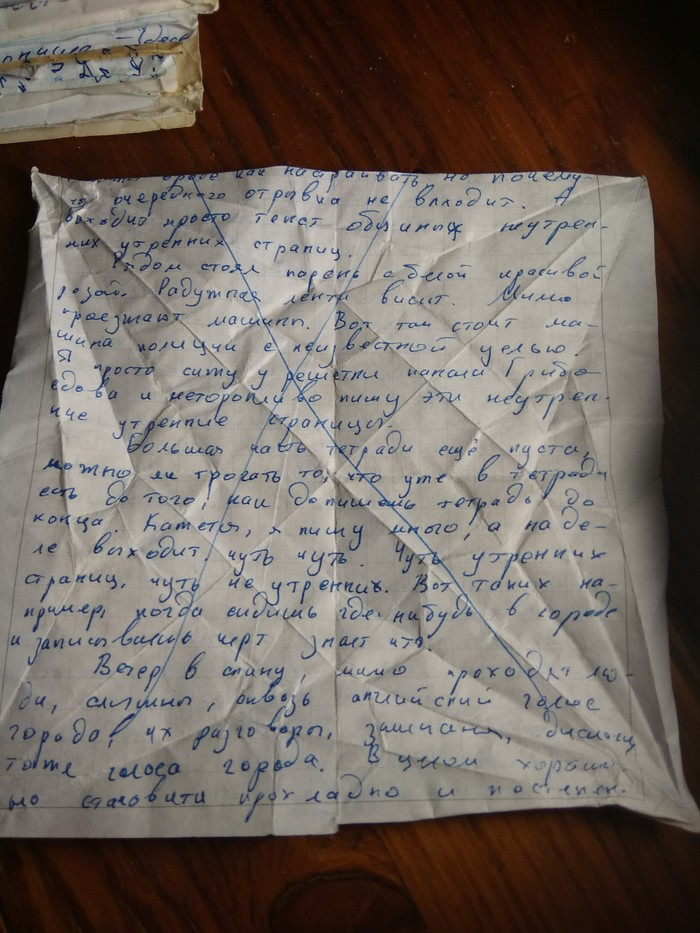 вроде как настраивать но почему-
то очередного отрывка не выходит. А
выходит просто текст обычных неутрен-
них утренних страниц.
Рядом стоял парень с белой красивой
розой. Радужная лента висит. Мимо
проезжают машины. Вот там стоит ма-
шина полиции с неизвестной целью.
Я просто сижу у решётки канала Грибо-
едова и неторопливо пишу эти неутрен-
ние утренние страницы.
Большая часть тетради ещё пуста,
можно ли трогать то, что уже в тетради
есть до того, как допишешь тетрадь до
конца. Кажется, я пишу много, а на де-
ле выходит чуть чуть. Чуть утренних
страниц, чуть не утренних. Вот таких на-
пример, когда сидишь где-нибудь в городе
и записываешь черт знает что.
Ветер в спину, мимо проходят лю-
ди, слышны, сквозь английский голос
города, их разговоры, замечания, диалоги,
тоже голоса города. В целом хорошо,
но становится прохладно и постепен-